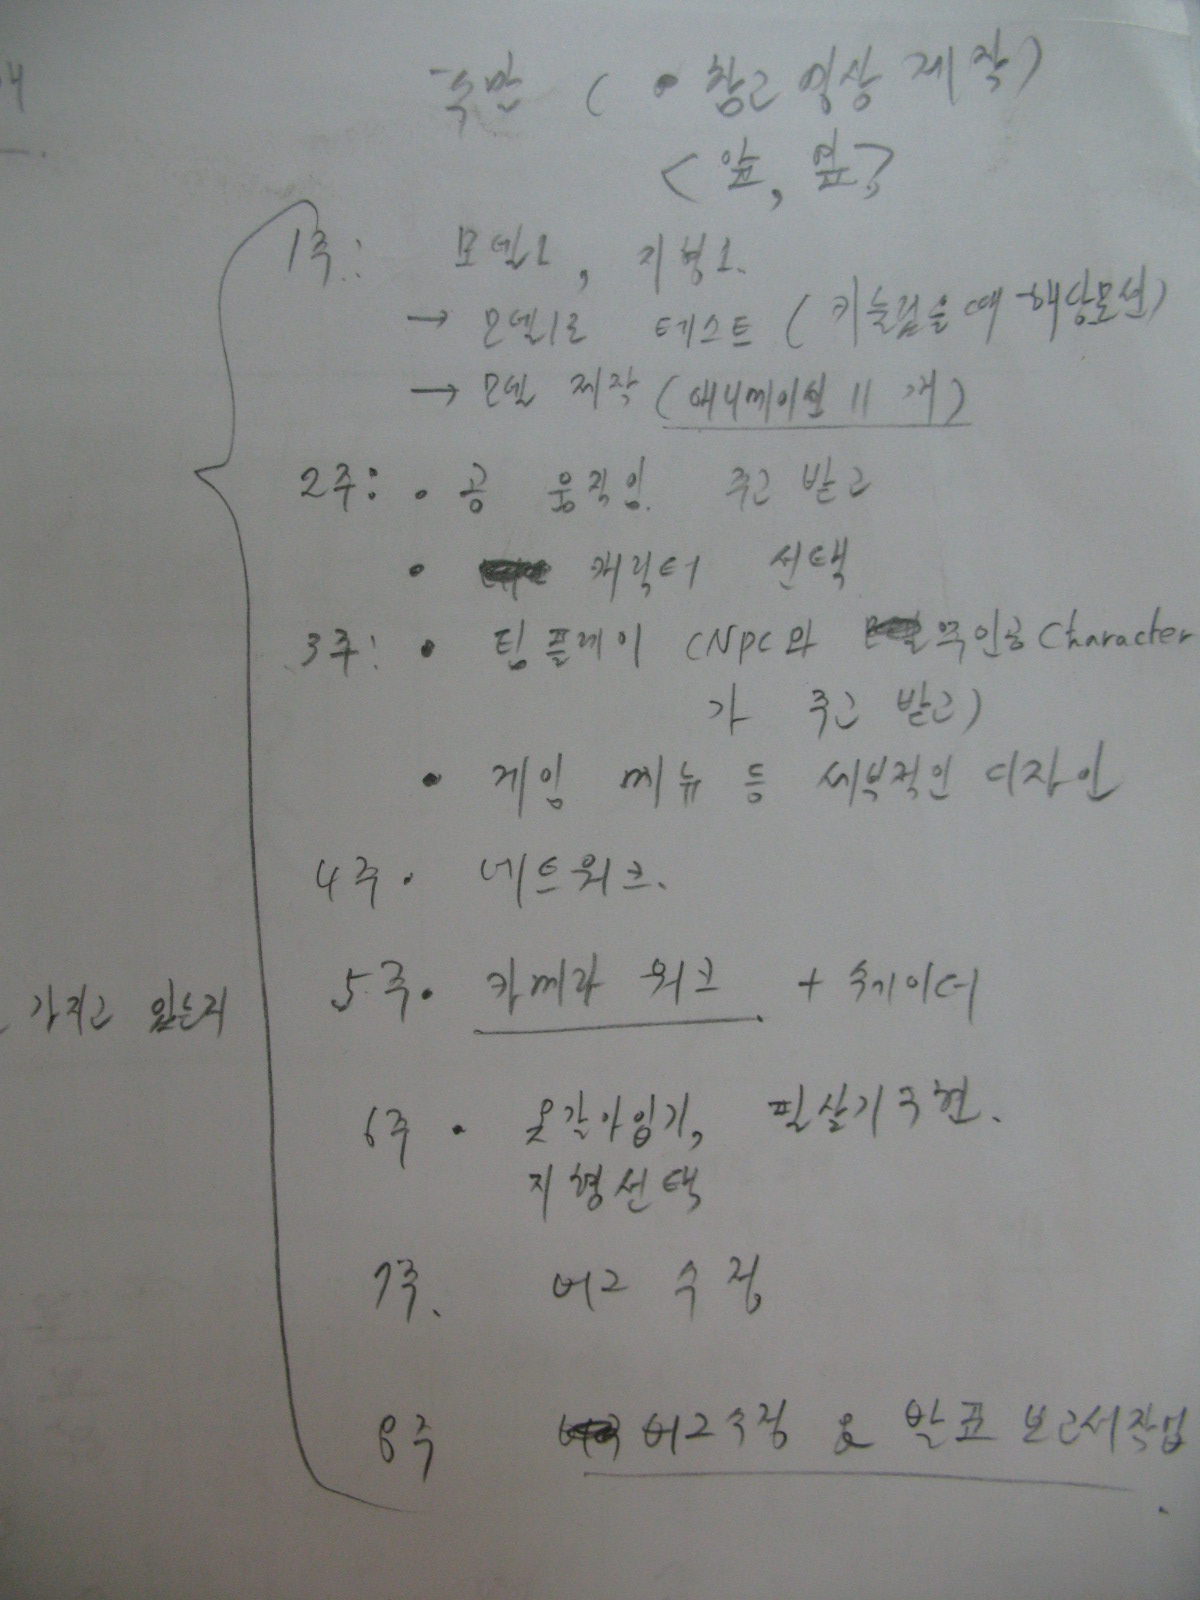 주말 ( • 참고 영상 제작)
<앞, 옆>
1주: 모델1, 지형1.
→ 모델1로 테스트 (키눌렀을때 해당모션)
→ 모델 제작 (애니메이션 11개)
2주: • 공 움직임. 주고 받고
• 캐릭터 선택
3주: • 팀플레이 (NPC와 주인공 Character
가 주고 받고)
• 게임 메뉴 등 세부적인 디자인
4주 • 네트워크.
5주 • 카메라 워크 +
가지고 있는지
6주 • 옷갈아입기, 필살기구현.
지형선택
7주. 버그 수정
8주 버그수정 & 발표 보고서작업.